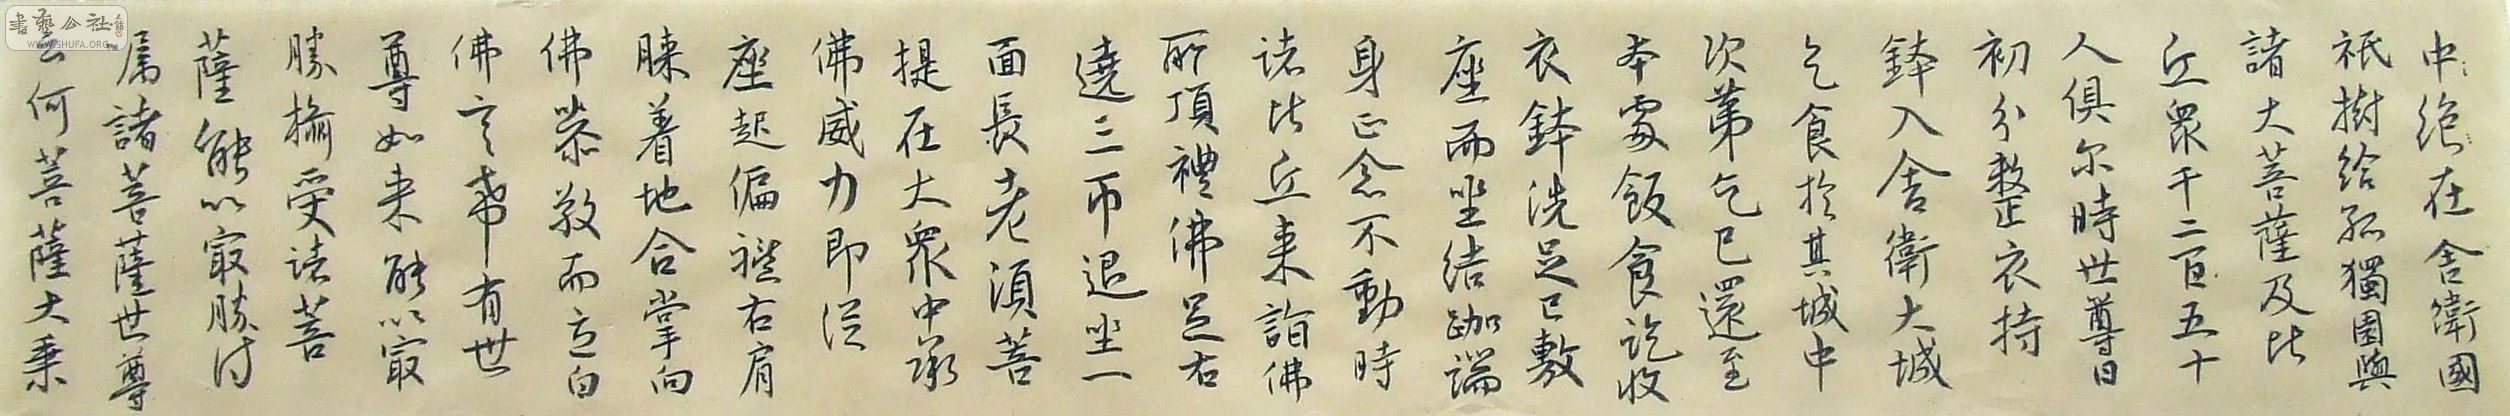 中：絶在舍衛國
祇樹給孤獨園與
諸大菩薩及比
丘眾千二百五十
人俱尔時世尊日
初分整衣持
鉢入舍衛大城
乞食於其城中
次第乞已還至
本處飯食訖收
衣鉢洗足已敷
座而坐結跏端
身正念不動時
諸比丘来詣佛
所頂禮佛足右
遶三帀退坐一
面長老湏菩
提在大眾中承
佛威力即從
座起偏袒右肩
膝着地合掌向
佛恭敬而立白
佛言希有世
尊如来能以最
勝攝受諸菩
薩能以最勝付
属諸菩薩世尊
云何菩薩大乘
書藝公社
WWW.SHUFA.ORG